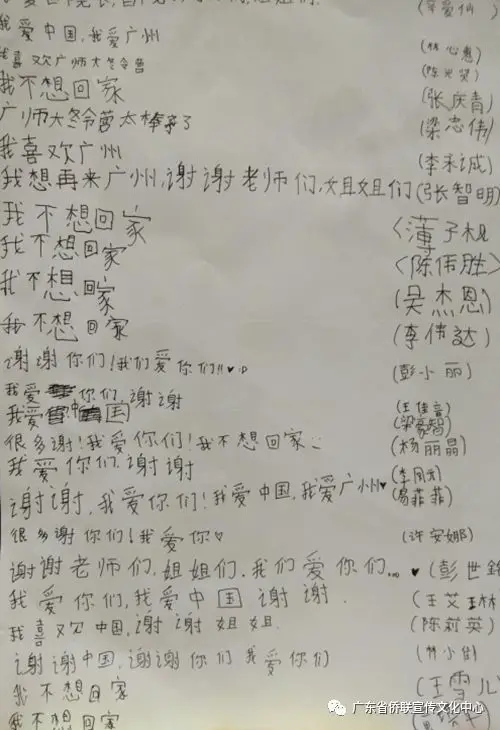 我爱中国,我爱广州 (林心惠)
我喜欢广师大冬令营
我不想回家 (张庆青)
广师大冬令营太棒了 (梁志伟)
我喜欢广州 (李承诚)
我想再来广州,谢谢老师们,姐姐们 (张智明)
我不想回家
我不想回家 (陈伟胜)
我不想回家 (吴杰恩)
我不想回家 (李伟达)
谢谢你们!我们爱你们!!♥:D (彭小丽)
我爱你们,谢谢 (王佳音)
我爱中国 (梁豪智)
很多谢!我爱你们!我不想回家 (杨丽晶)
我爱你们.谢谢
谢谢,我爱你们!我爱中国,我爱广州♥ (易菲菲)
很多谢你们!我爱你♡ (许安娜)
谢谢老师们,姐姐们.我们爱你们... ♥ (彭世
我爱你们,我爱中国谢谢. (王艾琳)
我喜欢中国,谢谢姐姐. (陈莉英)
谢谢中国,谢谢你们我爱你们
我不想回家 (王雪儿
我不想回家
广东省侨联宣传文化中心